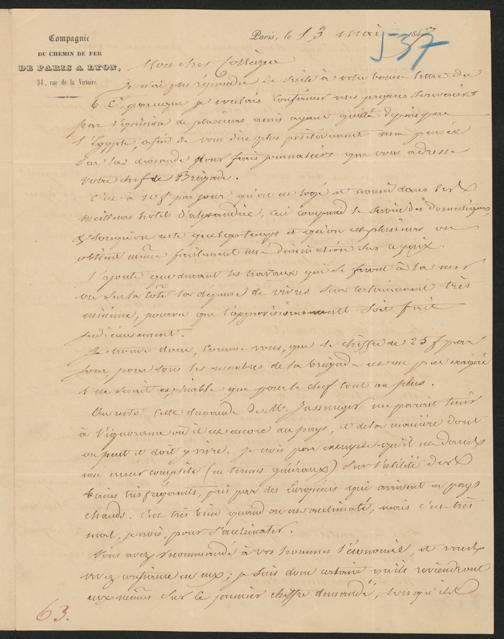 Compagnie
DU CHEMIN DE FER
DE PARIS A LYON,
34, rue de la Victoire.
Paris, le 13 mai 1847
537
Mon cher Collègue
Je n'ai pas répondu de suite à votre bonne lettre du
6 Ct, parceque je voulais confirmer mes propres souvenirs
par l'expérience de plusieurs amis ayant quitté depuis peu
l'Egypte, afin de vous dire plus positivement ma pensée
sur la demande pour frais journaliers que vous adresse
votre chef de Brigade.
C'est à 10f par jour qu'on est logé et nourri dans les
meilleurs hotels d'alexandrie, y compris le service des domestiques,
& lorsqu'on reste quelque temps et qu'on est plusieurs on
obtient même facilement une diminution sur ce prix.
J'ajoute que durant les travaux qui se feront à la mer
ou sur la côte la dépense de vivres sera certainement très
minime, pourvu que l'approvisionnement soit fait
judicieusement.
Je trouve donc, comme vous, que le chiffre de 25f par
jour pour tous les membres de la brigade est un peu exagéré
& ne serait explicable que pour le chef tout au plus.
Au reste cette demande de Mr me parait tenir
à l'ignorance où il est encore du pays, et de la manière dont
on peut et doit y vivre. Je crois par exemple qu'il est dans
une erreur complète (en termes généraux) sur l'utilité des
bains très fréquents, pris par des Européens qui arrivent en pays
chauds. C'est très bien quand on est acclimaté, mais c'est très
mal, je crois, pour s'acclimater.
Vous avez recommandé à vos hommes l'économie, et vous
avez confiance en eux; je suis donc certain qu'ils reviendront
eux mêmes sur le premier chiffre demandé, lorsqu'ils
63.